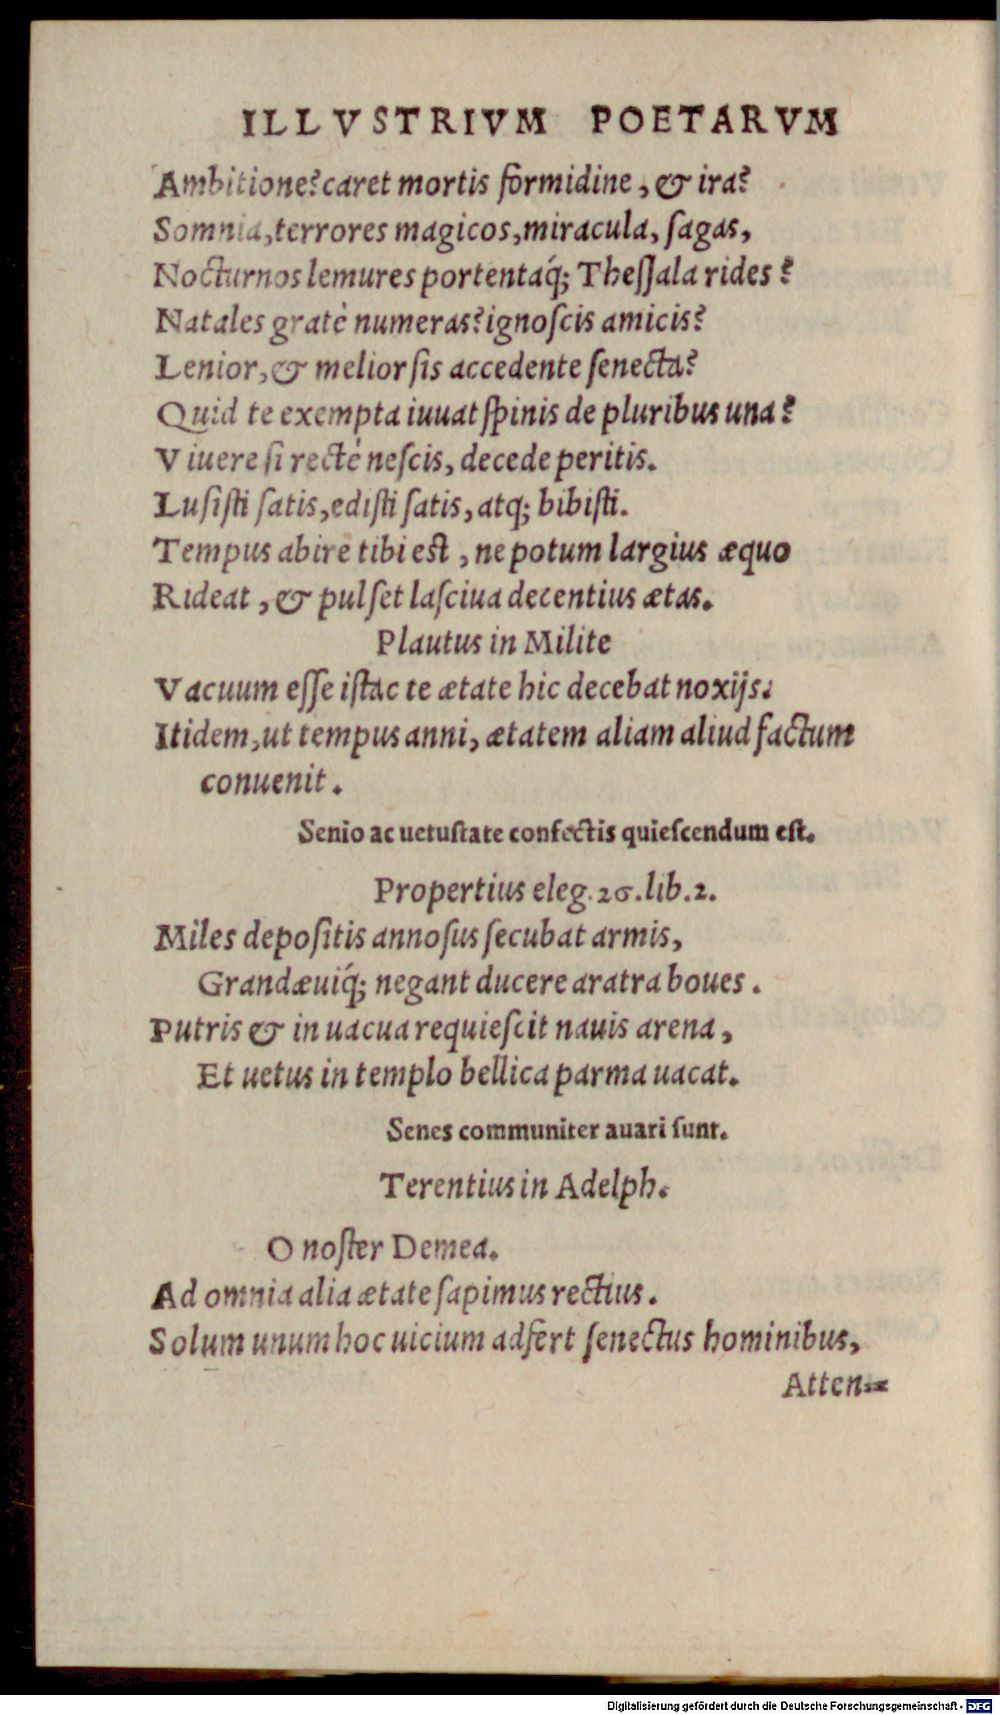 ILLVSTRIVM POETARVM
Ambitione? caret mortis formidine, & ira?
Somnia, terrores magicos, miracula, ſagas,
Nocturnos lemures portentaq́; Theſſala rides?
Natales gratè numeras? ignoſcis amicis?
Lenior, & melior ſis accedente ſenecta?
Quid te exempta iuuat ſpinis de pluribus una?
Viuere ſi rectè neſcis, decede peritis.
Luſiſti ſatis, ediſti ſatis, atq; bibiſti.
Tempus abire tibi eſt, ne potum largius æquo
Rideat, & pulſet laſciua decentius ætas.
Plautus in Milite
Vacuum eſſe iſtac te ætate hic decebat noxijs:
Itidem, ut tempus anni, ætatem aliam aliud factum
conuenit.
Senio ac uetuſtate confectis quieſcendum eſt.
Propertius eleg. 26. lib. 2.
Miles depoſitis annoſus ſecubat armis,
Grandæuiq́; negant ducere aratra boues.
Putris & in uacua requieſcit nauis arena,
Et uetus in templo bellica parma uacat.
Senes communiter auari ſunt.
Terentius in Adelph.
O noſter Demea.
Ad omnia alia ætate ſapimus rectius.
Solum unum hoc uicium adfert ſenectus hominibus,
Atten-
Digitalisierung gefördert durch die Deutsche Forschungsgemeinschaft - DFG